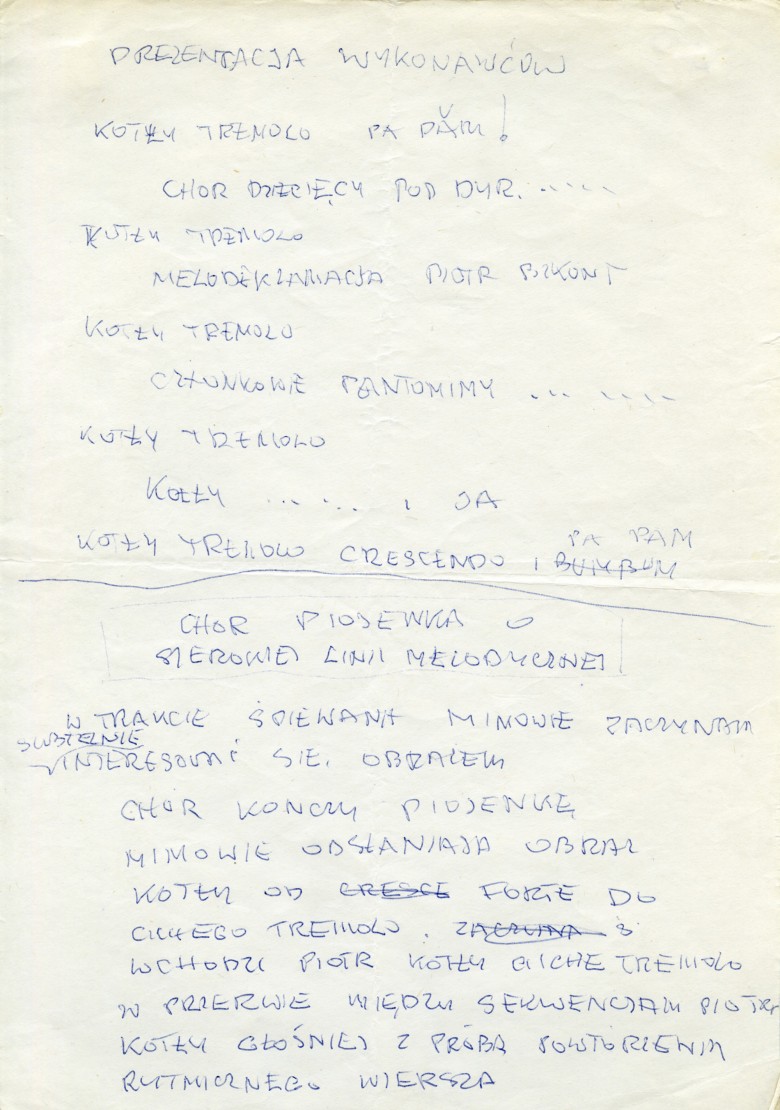 PREZENTACJA WYKONAWCÓW
KOTŁY TREMOLO PA PĂM!
CHOR DZIECIĘCY POD DYR. .....
KOTŁY TREMOLO
MELODEKLAMACJA PIOTR BIKONT
KOTŁY TREMOLO
CZŁONKOWIE PANTOMIMY ... ....
KOTŁY TREMOLO
KOTŁY ... ... i JA
KOTŁY TREMOLO CRESCENDO i BUM BUM
PA PAM
CHOR PIOSEWKA O
SZEROKIEJ LINII MELODYCZNEJ
W TRAKCIE ŚPIEWANIA MIMOWIE ZACZYNAJĄ
SUBTELNIE
INTERESOWAĆ SIĘ OBRAZEM
CHÓR KOŃCZY PIOSENKĘ
MIMOWIE ODSŁANIAJA OBRAZ
KOTŁY OD CRESCE FORTE DO
CICHEGO TREMOLO. ZACZYNA
WCHODZI PIOTR KOTŁY CICHE TREMOLO
W PRZERWIE MIĘDZY SEKWENCJAMI PIOTRA
KOTŁY GŁOŚNIEJ Z PRÓBĄ POWTÓRZENIA
RYTMICZNEGO WIERSZA